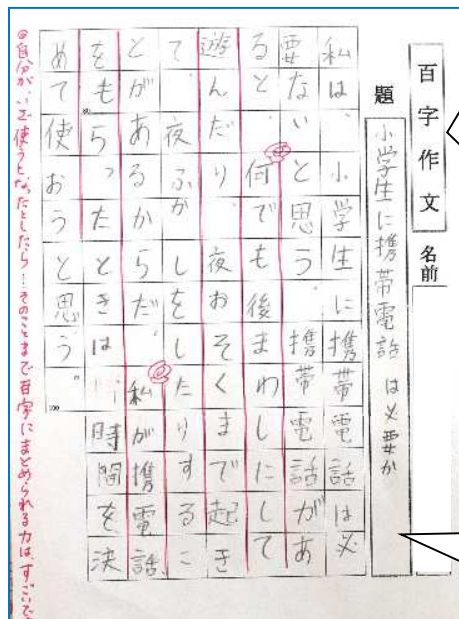 百字作文 名前
題 小学生に携帯電話は必要か
私は、小学生に携帯電話は必
要ないと思う。携帯電話があ
ると、何でも後まわしにして
遊んだり、夜おそくまで起き
て、夜ふがしをしたりするこ
とがあるからだ。私が携電話
をもらったときは、時間を決
めて使おうと思う。
100
◎自分が、いざ使うとなったとしたら…そのことまで百字にまとめられる力は、すごいで